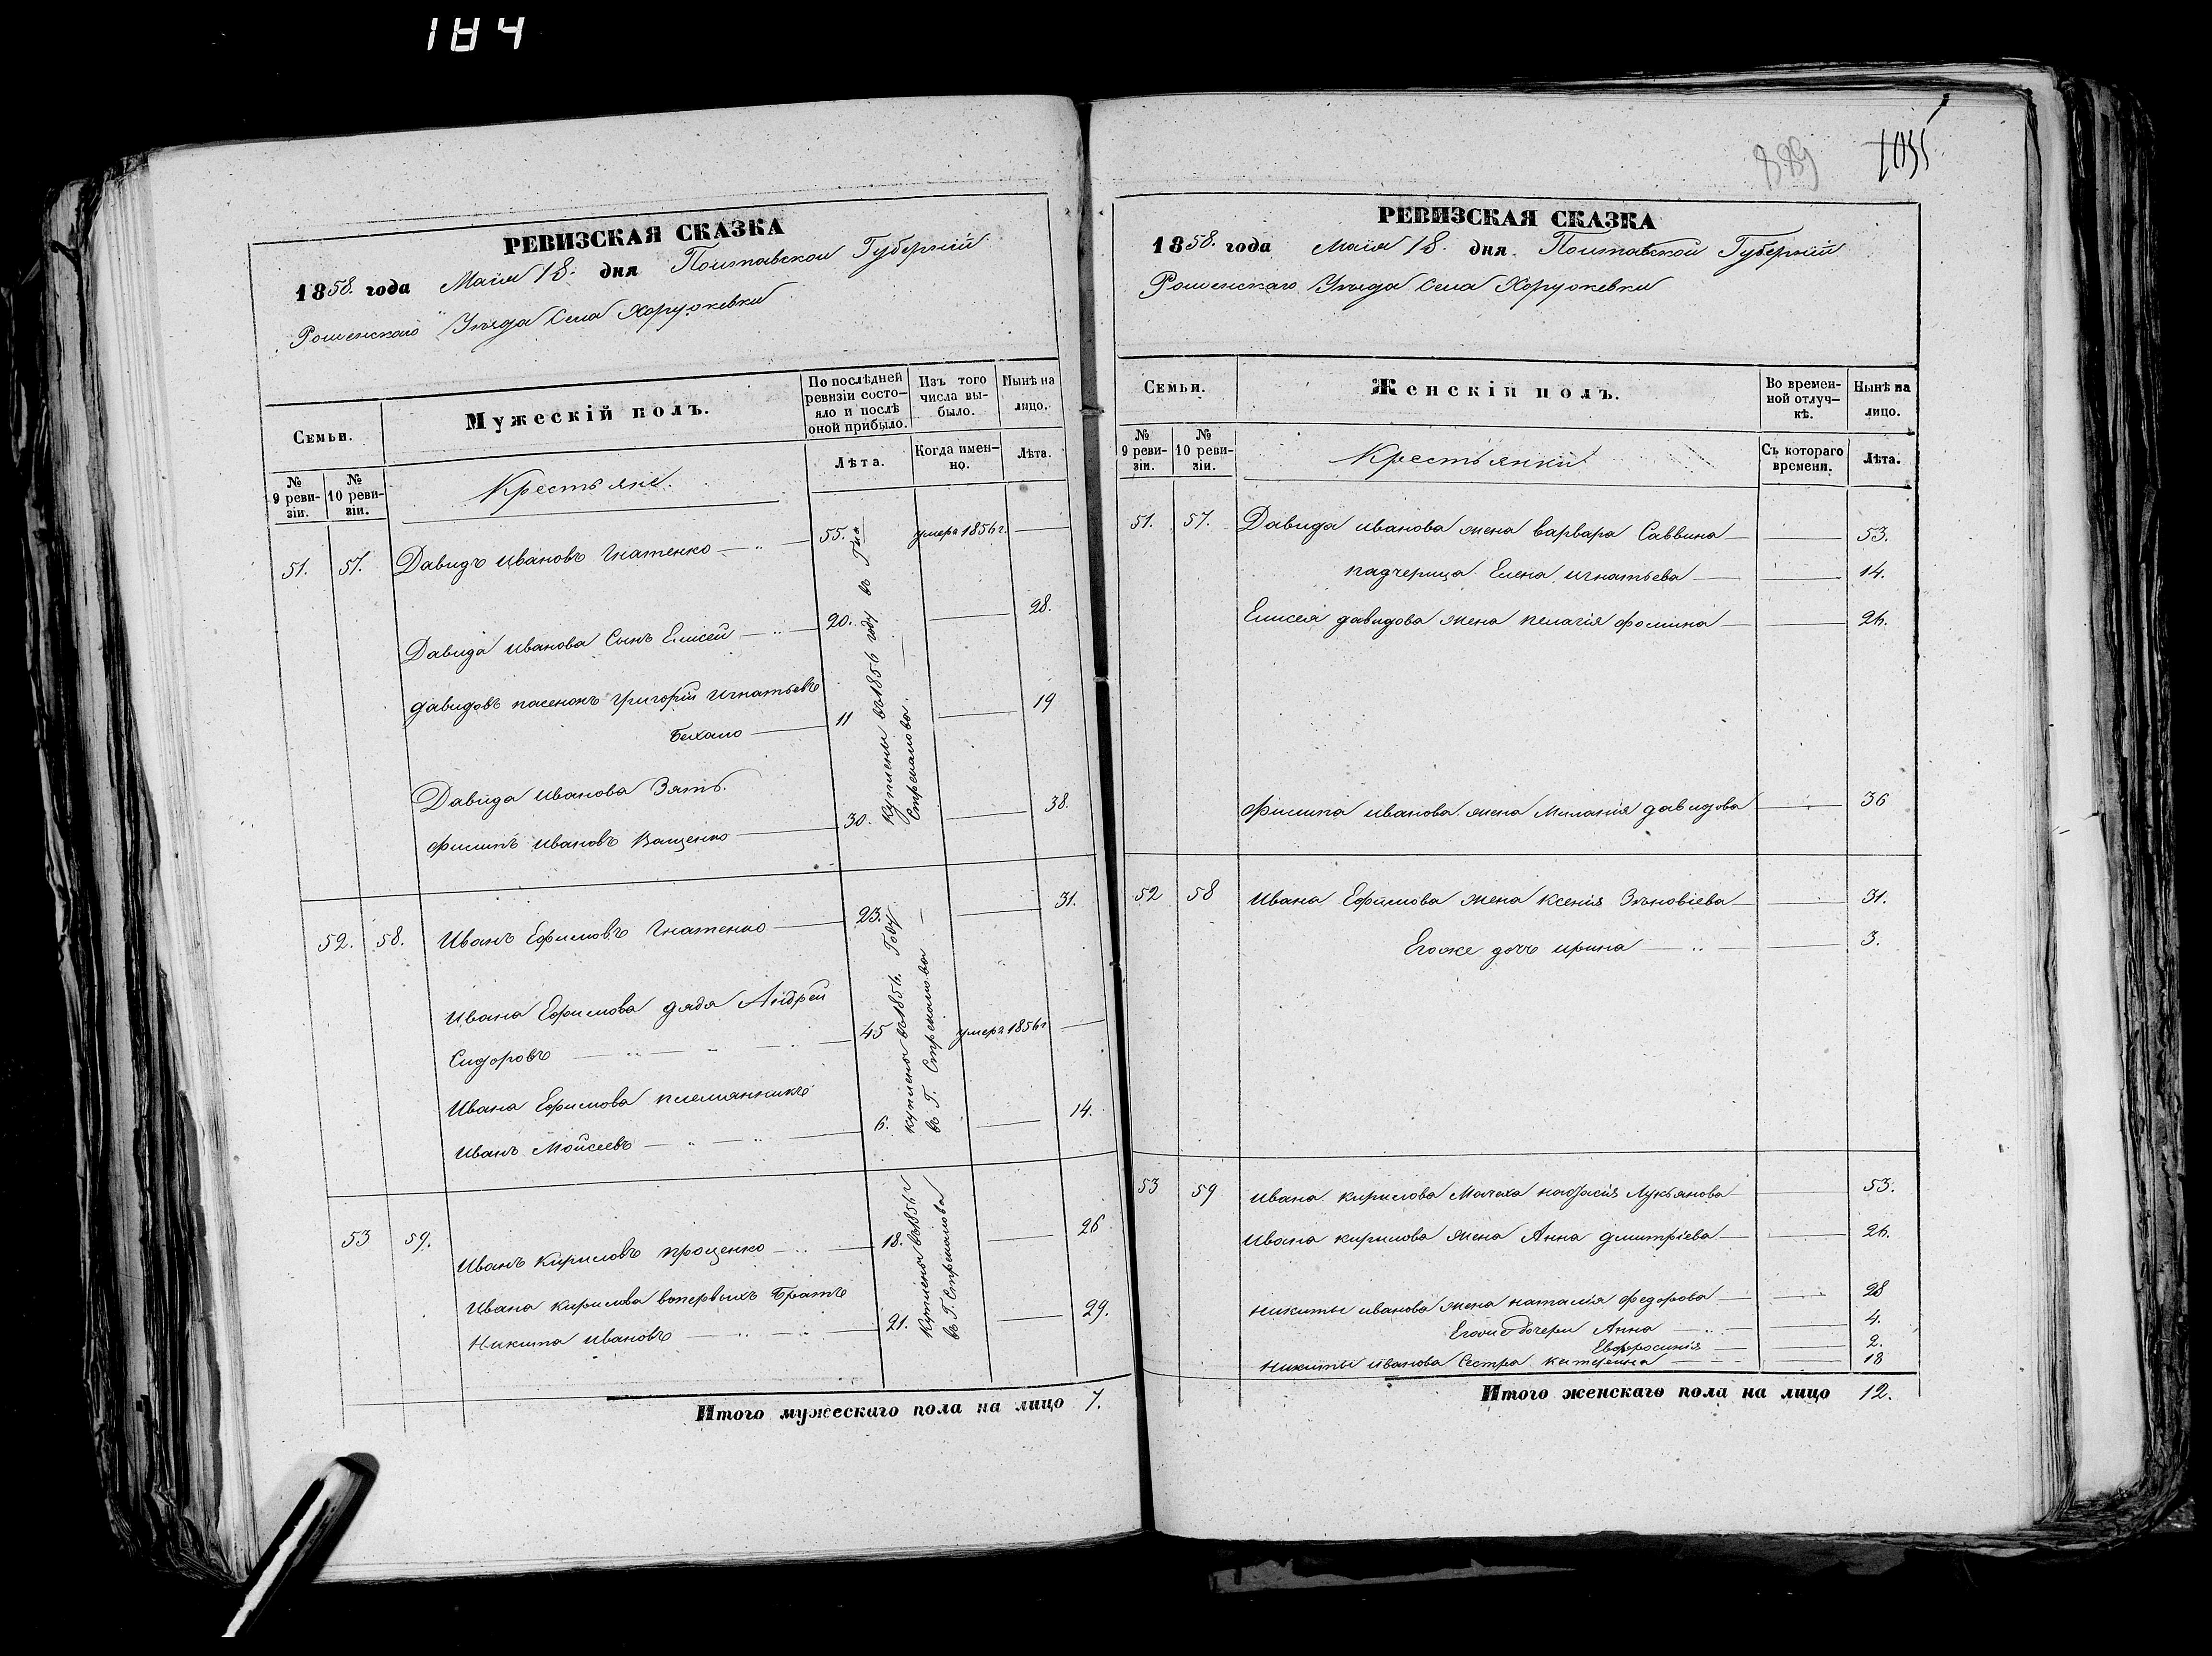 184
РЕВИЗСКАЯ СКАЗКА
1858. года Маія 18. дня Полтавской Губерніи
Роменскаго Уѣзда Села Хоружевки
Семьи.
Мужескій полъ.
По послѣдней ревизіи состо-яло и послѣ оной прибыло.
Изъ того числа вы-было.
Нынѣ на лицо.
№ 9 реви-зіи.
№ 10 реви-зіи.
Крестьяне.
Лѣта.
Когда имен-но.
Лѣта.
51. 57. Давидъ Ивановъ Гнатенко 55. умеръ 1856 г.
Давида Иванова Сынъ Елисей 20. 28.
давидовъ пасенокъ григорій Игнатьевъ
Белхало 11 19
Давида Иванова Зять.
Филипъ Ивановъ Ващенко 30. 38.
куплены въ 1856 году в Гна
Стремаухова.
52. 58. Иванъ Ефимовъ Гнатенко 23. 31.
Ивана Ефимова дядя Андрей
Сидоровъ 45 умеръ 1856 г
Ивана Ефимова племянникъ
Иванъ Мойсеевъ 6. 14.
куплены въ 1856. Году
въ Г.
53 59. Иванъ Кириловъ проценко 18. 26
Ивана кирилова вопервыхъ Братъ
Никита Ивановъ 21. 29.
Куплены въ 1856 г
въ Г.
Итого мужескаго пола на лицо 7.
889 1035
РЕВИЗСКАЯ СКАЗКА
1858. года Маія 18. дня. Полтавской Губерніи
Роменскаго Уѣзда Села Хоружевки
Семьи.
Женскій полъ.
Во времен-ной отлуч-кѣ.
Нынѣ на лицо.
№ 9 реви-зіи.
№ 10 реви-зіи.
Крестьянки
Съ котораго времени.
Лѣта.
51. 57. Давида иванова жена варвара Саввина 53.
падчерица Елена игнатьева 14.
Елисея давидова жена пелагія фомина 26.
Филипа иванова жена Миланія давидова 36
52 58 Ивана Ефимова жена ксенія Зѣновіева 31.
Егоже дочь ирина 3.
53 59 Ивана кирилова Мачеха настасія Лукьянова 53.
Ивана кирилова жена Анна дмитріева 26.
никиты иванова жена наталія федорова 28
Егоже дочери Анна 4.
Евфросинія 2.
никиты иванова Сестра катерина 18
Итого женскаго пола на лицо 12.